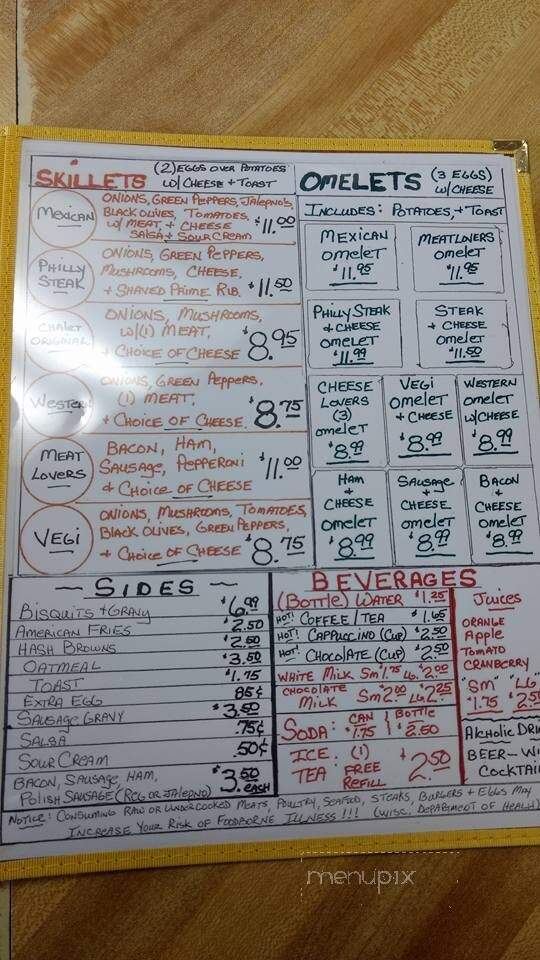 SKILLETS (2) EGGS OVER POTATOES
W/ CHEESE + TOAST
MEXICAN
ONIONS, GREEN PEPPERS, JALEPNO'S,
BLACK OLIVES, TOMATOES,
W/ MEAT, + CHEESE
SALSA + SOUR CREAM
$11.00
PHILLY
STEAK
ONIONS, GREEN PEPPERS,
MUSHROOMS, CHEESE,
+ SHAVED PRIME RIB. $11.50
CHALET
ORIGINAL
ONIONS, MUSHROOMS,
W/(1) MEAT,
+ CHOICE OF CHEESE $8.95
WESTERN
ONIONS, GREEN PEPPERS,
(1) MEAT,
+ CHOICE OF CHEESE. $8.75
MEAT
LOVERS
BACON, HAM,
SAUSAGE, PEPPERONI
& CHOICE OF CHEESE
$11.00
VEGI
ONIONS, MUSHROOMS, TOMATOES,
BLACK OLIVES, GREEN PEPPERS,
+ CHOICE OF CHEESE $8.75
OMELETS (3 EGGS)
W/CHEESE
INCLUDES: POTATOES, + TOAST
MEXICAN
OMELET
$11.95
MEATLOVERS
OMELET
$11.95
PHILLY STEAK
+ CHEESE
OMELET
$11.99
STEAK
+ CHEESE
OMELET
$11.50
CHEESE
LOVERS
(3)
OMELET
$8.99
VEGI
OMELET
+ CHEESE
$8.99
WESTERN
OMELET
W/CHEESE
$8.99
HAM
+
CHEESE
OMELET
$8.99
SAUSAGE
+
CHEESE
OMELET
$8.99
BACON
+
CHEESE
OMELET
$8.99
~ SIDES ~
BISQUITS + GRAVY $6.99
AMERICAN FRIES $2.50
HASH BROWNS $2.50
OATMEAL $3.50
TOAST $1.75
EXTRA EGG 85¢
SAUSAGE GRAVY $3.50
SALSA .75¢
SOUR CREAM .50¢
BACON, SAUSAGE, HAM,
POLISH SAUSAGE (REG OR JALEPNO) $3.50 EACH
BEVERAGES
(BOTTLE) WATER $1.25
HOT! COFFEE / TEA $1.65
HOT! CAPPUCCINO (CUP) $2.50
HOT! CHOCOLATE (CUP) $2.50
WHITE MILK SM $1.75 LG. $2.00
CHOCOLATE
MILK SM 2.00 LG 2.25
SODA: CAN $1.75 BOTTLE $2.50
ICE TEA: (1) FREE REFILL $2.50
JUICES
ORANGE
APPLE
TOMATO
CRANBERRY
"SM" "LG"
$1.75 $2.50
ALCHOLIC
BEER-
NOTICE: CONSUMING RAW OR UNDERCOOKED MEATS, POULTRY, SEAFOOD, STEAKS, BURGERS + EGGS MAY
INCREASE YOUR RISK OF FOODBORNE ILLNESS!!! (WISC. DEPARTMENT OF HEALTH)
menupix